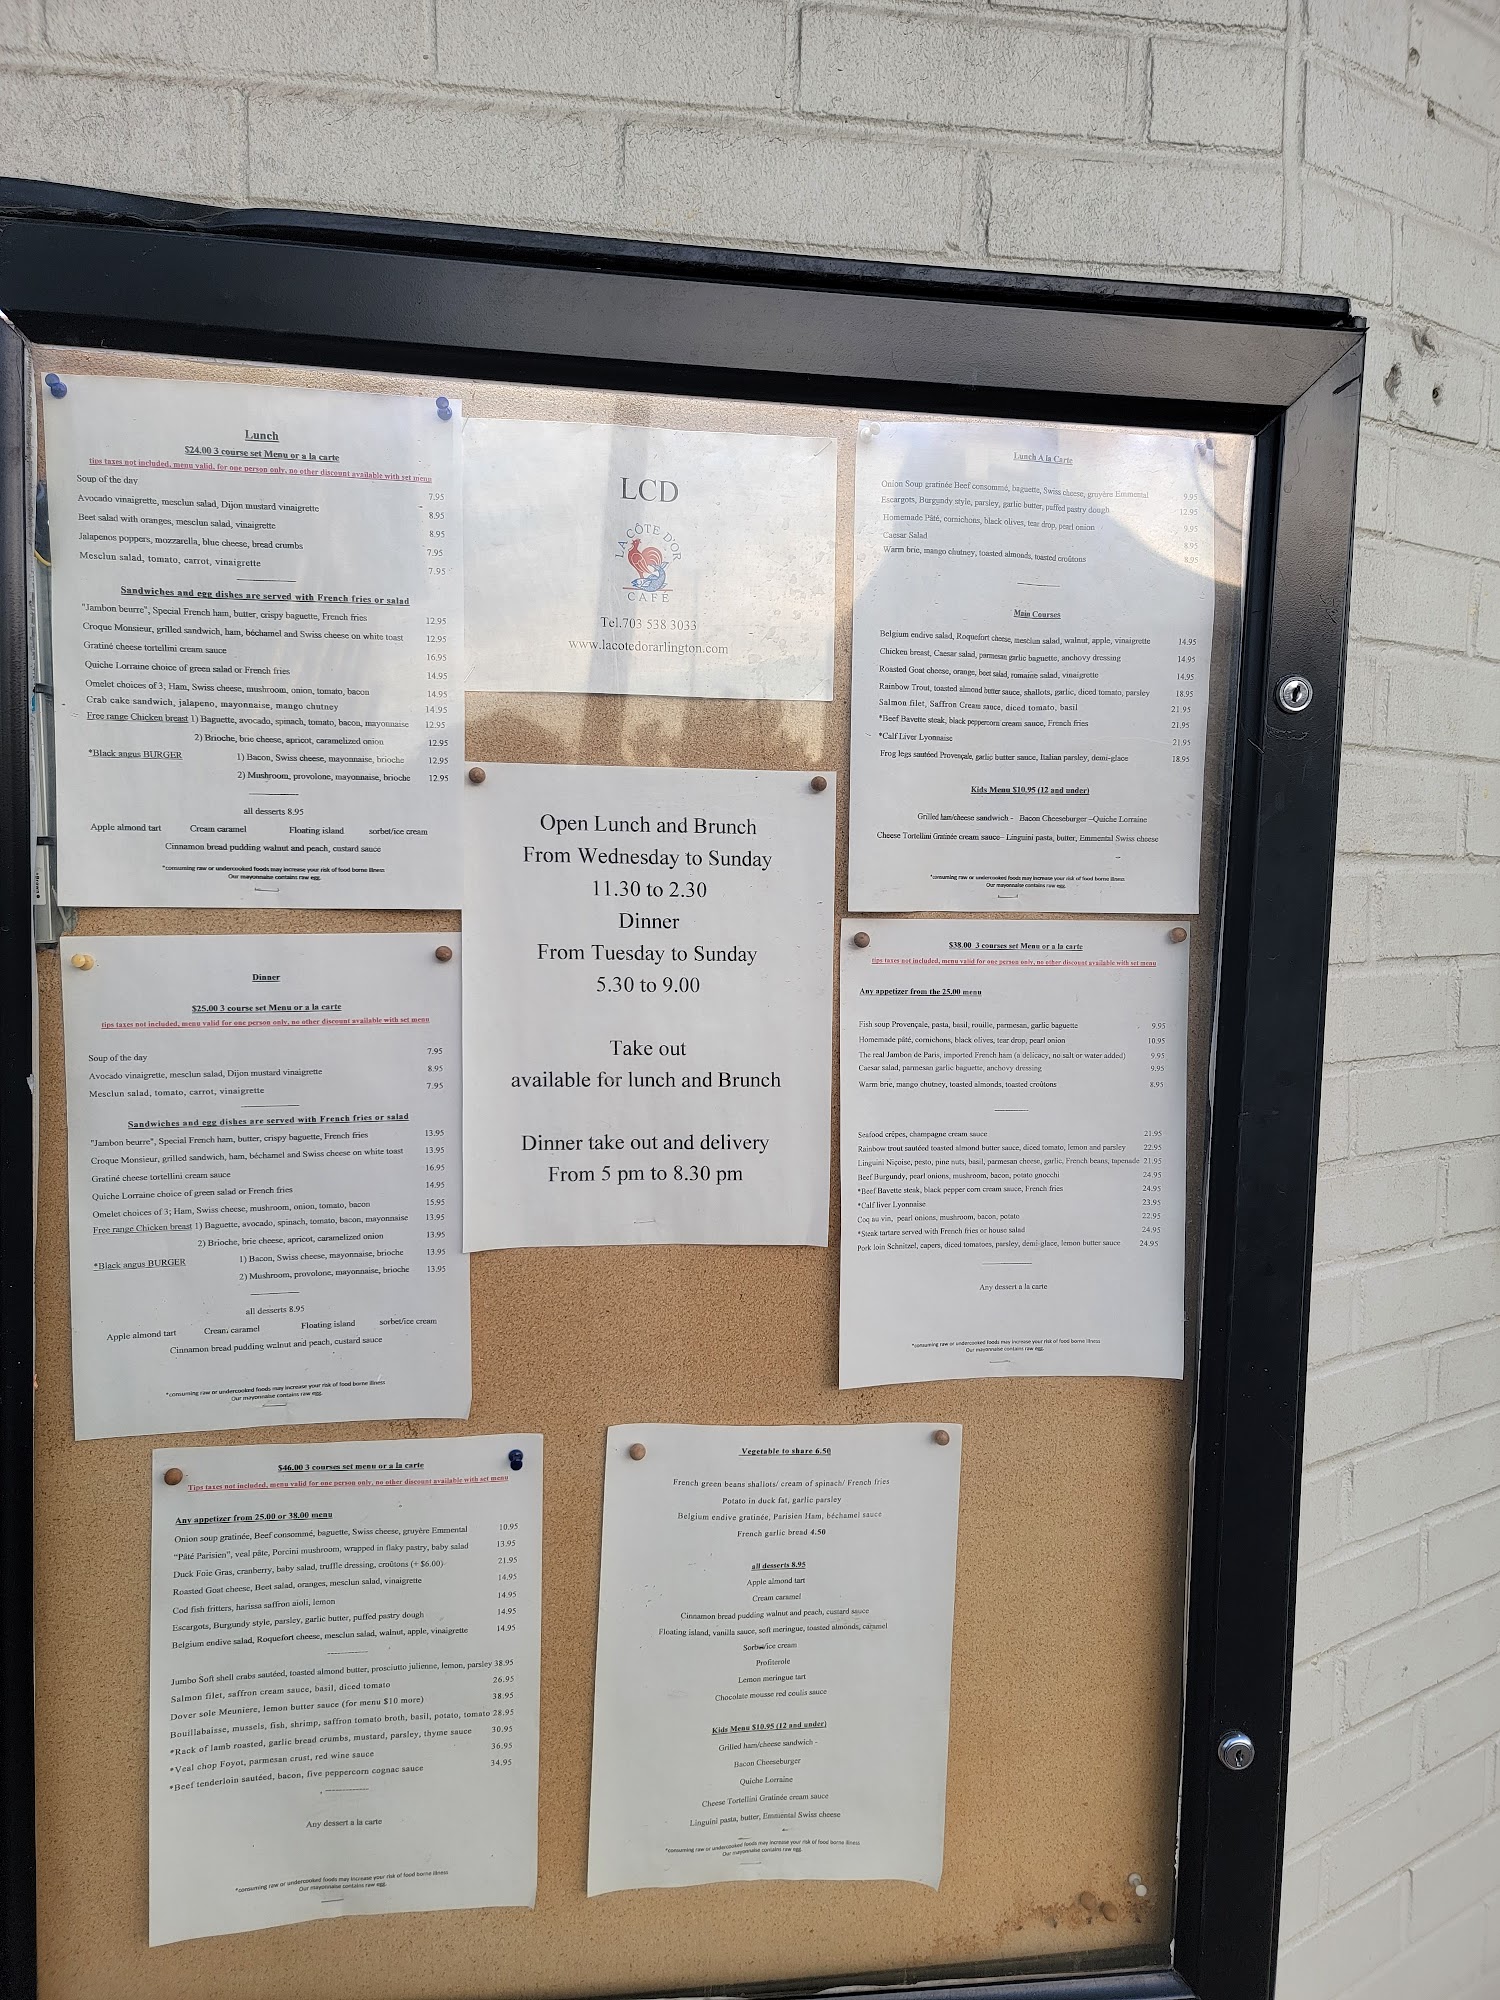 Lunch
$24.00 3 course set Menu or a la carte
tips taxes not included, menu valid, for one person only, no other discount available with set menu
Soup of the day 7.95
Avocado vinaigrette, mesclun salad, Dijon mustard vinaigrette 8.95
Beet salad with oranges, mesclun salad, vinaigrette 8.95
Jalapenos poppers, mozzarella, blue cheese, bread crumbs 7.95
Mesclun salad, tomato, carrot, vinaigrette 7.95
Sandwiches and egg dishes are served with French fries or salad
"Jambon beurre", Special French ham, butter, crispy baguette, French fries 12.95
Croque Monsieur, grilled sandwich, ham, béchamel and Swiss cheese on white toast 12.95
Gratiné cheese tortellini cream sauce 16.95
Quiche Lorraine choice of green salad or French fries 14.95
Omelet choices of 3; Ham, Swiss cheese, mushroom, onion, tomato, bacon 14.95
Crab cake sandwich, jalapeno, mayonnaise, mango chutney 14.95
Free range Chicken breast 1) Baguette, avocado, spinach, tomato, bacon, mayonnaise 12.95
2) Brioche, brie cheese, apricot, caramelized onion 12.95
*Black angus BURGER 1) Bacon, Swiss cheese, mayonnaise, brioche 12.95
2) Mushroom, provolone, mayonnaise, brioche 12.95
all desserts 8.95
Apple almond tart Cream caramel Floating island sorbet/ice cream
Cinnamon bread pudding walnut and peach, custard sauce
*consuming raw or undercooked foods may increase your risk of food borne illness
Our mayonnaise contains raw egg.
LCD
LA CÔTE D'OR
CAFE
Tel.703 538 3033
www.lacotedorarlington.com
Lunch A la Carte
Onion Soup gratinée Beef consommé, baguette, Swiss cheese, gruyère Emmental 9.95
Escargots, Burgundy style, parsley, garlic butter, puffed pastry dough 12.95
Homemade Pâté, cornichons, black olives, tear drop, pearl onion 9.95
Caesar Salad 8.95
Warm brie, mango chutney, toasted almonds, toasted croûtons 8.95
Main Courses
Belgium endive salad, Roquefort cheese, mesclun salad, walnut, apple, vinaigrette 14.95
Chicken breast, Caesar salad, parmesan garlic baguette, anchovy dressing 14.95
Roasted Goat cheese, orange, beet salad, romaine salad, vinaigrette 14.95
Rainbow Trout, toasted almond butter sauce, shallots, garlic, diced tomato, parsley 18.95
Salmon filet, Saffron Cream sauce, diced tomato, basil 21.95
*Beef Bavette steak, black peppercorn cream sauce, French fries 21.95
*Calf Liver Lyonnaise 21.95
Frog legs sautéed Provençale, garlic butter sauce, Italian parsley, demi-glace 18.95
Kids Menu $10.95 (12 and under)
Grilled ham/cheese sandwich - Bacon Cheeseburger –Quiche Lorraine
Cheese Tortellini Gratinée cream sauce– Linguini pasta, butter, Emmental Swiss cheese
*consuming raw or undercooked foods may increase your risk of food borne illness
Our mayonnaise contains raw egg.
Open Lunch and Brunch
From Wednesday to Sunday
11.30 to 2.30
Dinner
From Tuesday to Sunday
5.30 to 9.00
Take out
available for lunch and Brunch
Dinner take out and delivery
From 5 pm to 8.30 pm
Dinner
$25.00 3 course set Menu or a la carte
tips taxes not included, menu valid for one person only, no other discount available with set menu
Soup of the day 7.95
Avocado vinaigrette, mesclun salad, Dijon mustard vinaigrette 8.95
Mesclun salad, tomato, carrot, vinaigrette 7.95
Sandwiches and egg dishes are served with French fries or salad
"Jambon beurre", Special French ham, butter, crispy baguette, French fries 13.95
Croque Monsieur, grilled sandwich, ham, béchamel and Swiss cheese on white toast 13.95
Gratiné cheese tortellini cream sauce 16.95
Quiche Lorraine choice of green salad or French fries 14.95
Omelet choices of 3; Ham, Swiss cheese, mushroom, onion, tomato, bacon 15.95
Free range Chicken breast 1) Baguette, avocado, spinach, tomato, bacon, mayonnaise 13.95
2) Brioche, brie cheese, apricot, caramelized onion 13.95
*Black angus BURGER 1) Bacon, Swiss cheese, mayonnaise, brioche 13.95
2) Mushroom, provolone, mayonnaise, brioche 13.95
all desserts 8.95
Apple almond tart Cream caramel Floating island sorbet/ice cream
Cinnamon bread pudding walnut and peach, custard sauce
*consuming raw or undercooked foods may increase your risk of food borne illness
Our mayonnaise contains raw egg.
$38.00 3 courses set Menu or a la carte
tips taxes not included, menu valid for one person only, no other discount available with set menu
Any appetizer from the 25.00 menu
Fish soup Provençale, pasta, basil, rouille, parmesan, garlic baguette 9.95
Homemade pâté, cornichons, black olives, tear drop, pearl onion 10.95
The real Jambon de Paris, imported French ham (a delicacy, no salt or water added) 9.95
Caesar salad, parmesan garlic baguette, anchovy dressing 9.95
Warm brie, mango chutney, toasted almonds, toasted croûtons 8.95
Seafood crêpes, champagne cream sauce 21.95
Rainbow trout sautéed toasted almond butter sauce, diced tomato, lemon and parsley 22.95
Linguini Niçoise, pesto, pine nuts, basil, parmesan cheese, garlic, French beans, tapenade 21.95
Beef Burgundy, pearl onions, mushroom, bacon, potato gnocchi 24.95
*Beef Bavette steak, black pepper corn cream sauce, French fries 24.95
*Calf liver Lyonnaise 23.95
Coq au vin, pearl onions, mushroom, bacon, potato 22.95
*Steak tartare served with French fries or house salad 24.95
Pork loin Schnitzel, capers, diced tomatoes, parsley, demi-glace, lemon butter sauce 24.95
Any dessert a la carte
*consuming raw or undercooked foods may increase your risk of food borne illness
Our mayonnaise contains raw egg.
$46.00 3 courses set menu or a la carte
Tips taxes not included, menu valid for one person only, no other discount available with set menu
Any appetizer from 25.00 or 38.00 menu
Onion soup gratinée, Beef consommé, baguette, Swiss cheese, gruyère Emmental 10.95
"Pâté Parisien", veal pâte, Porcini mushroom, wrapped in flaky pastry, baby salad 13.95
Duck Foie Gras, cranberry, baby salad, truffle dressing, croûtons (+ $6.00) 21.95
Roasted Goat cheese, Beet salad, oranges, mesclun salad, vinaigrette 14.95
Cod fish fritters, harissa saffron aioli, lemon 14.95
Escargots, Burgundy style, parsley, garlic butter, puffed pastry dough 14.95
Belgium endive salad, Roquefort cheese, mesclun salad, walnut, apple, vinaigrette 14.95
Jumbo Soft shell crabs sautéed, toasted almond butter, prosciutto julienne, lemon, parsley 38.95
Salmon filet, saffron cream sauce, basil, diced tomato 26.95
Dover sole Meuniere, lemon butter sauce (for menu $10 more) 38.95
Bouillabaisse, mussels, fish, shrimp, saffron tomato broth, basil, potato, tomato 28.95
*Rack of lamb roasted, garlic bread crumbs, mustard, parsley, thyme sauce 30.95
*Veal chop Foyot, parmesan crust, red wine sauce 36.95
*Beef tenderloin sautéed, bacon, five peppercorn cognac sauce 34.95
Any dessert a la carte
*consuming raw or undercooked foods may increase your risk of food borne illness
Our mayonnaise contains raw egg.
Vegetable to share 6.50
French green beans shallots/ cream of spinach/ French fries
Potato in duck fat, garlic parsley
Belgium endive gratinée, Parisien Ham, béchamel sauce
French garlic bread 4.50
all desserts 8.95
Apple almond tart
Cream caramel
Cinnamon bread pudding walnut and peach, custard sauce
Floating island, vanilla sauce, soft meringue, toasted almonds, caramel
Sorbet/ice cream
Profiterole
Lemon meringue tart
Chocolate mousse red coulis sauce
Kids Menu $10.95 (12 and under)
Grilled ham/cheese sandwich -
Bacon Cheeseburger
Quiche Lorraine
Cheese Tortellini Gratinée cream sauce
Linguini pasta, butter, Emmental Swiss cheese
*consuming raw or undercooked foods may increase your risk of food borne illness
Our mayonnaise contains raw egg.